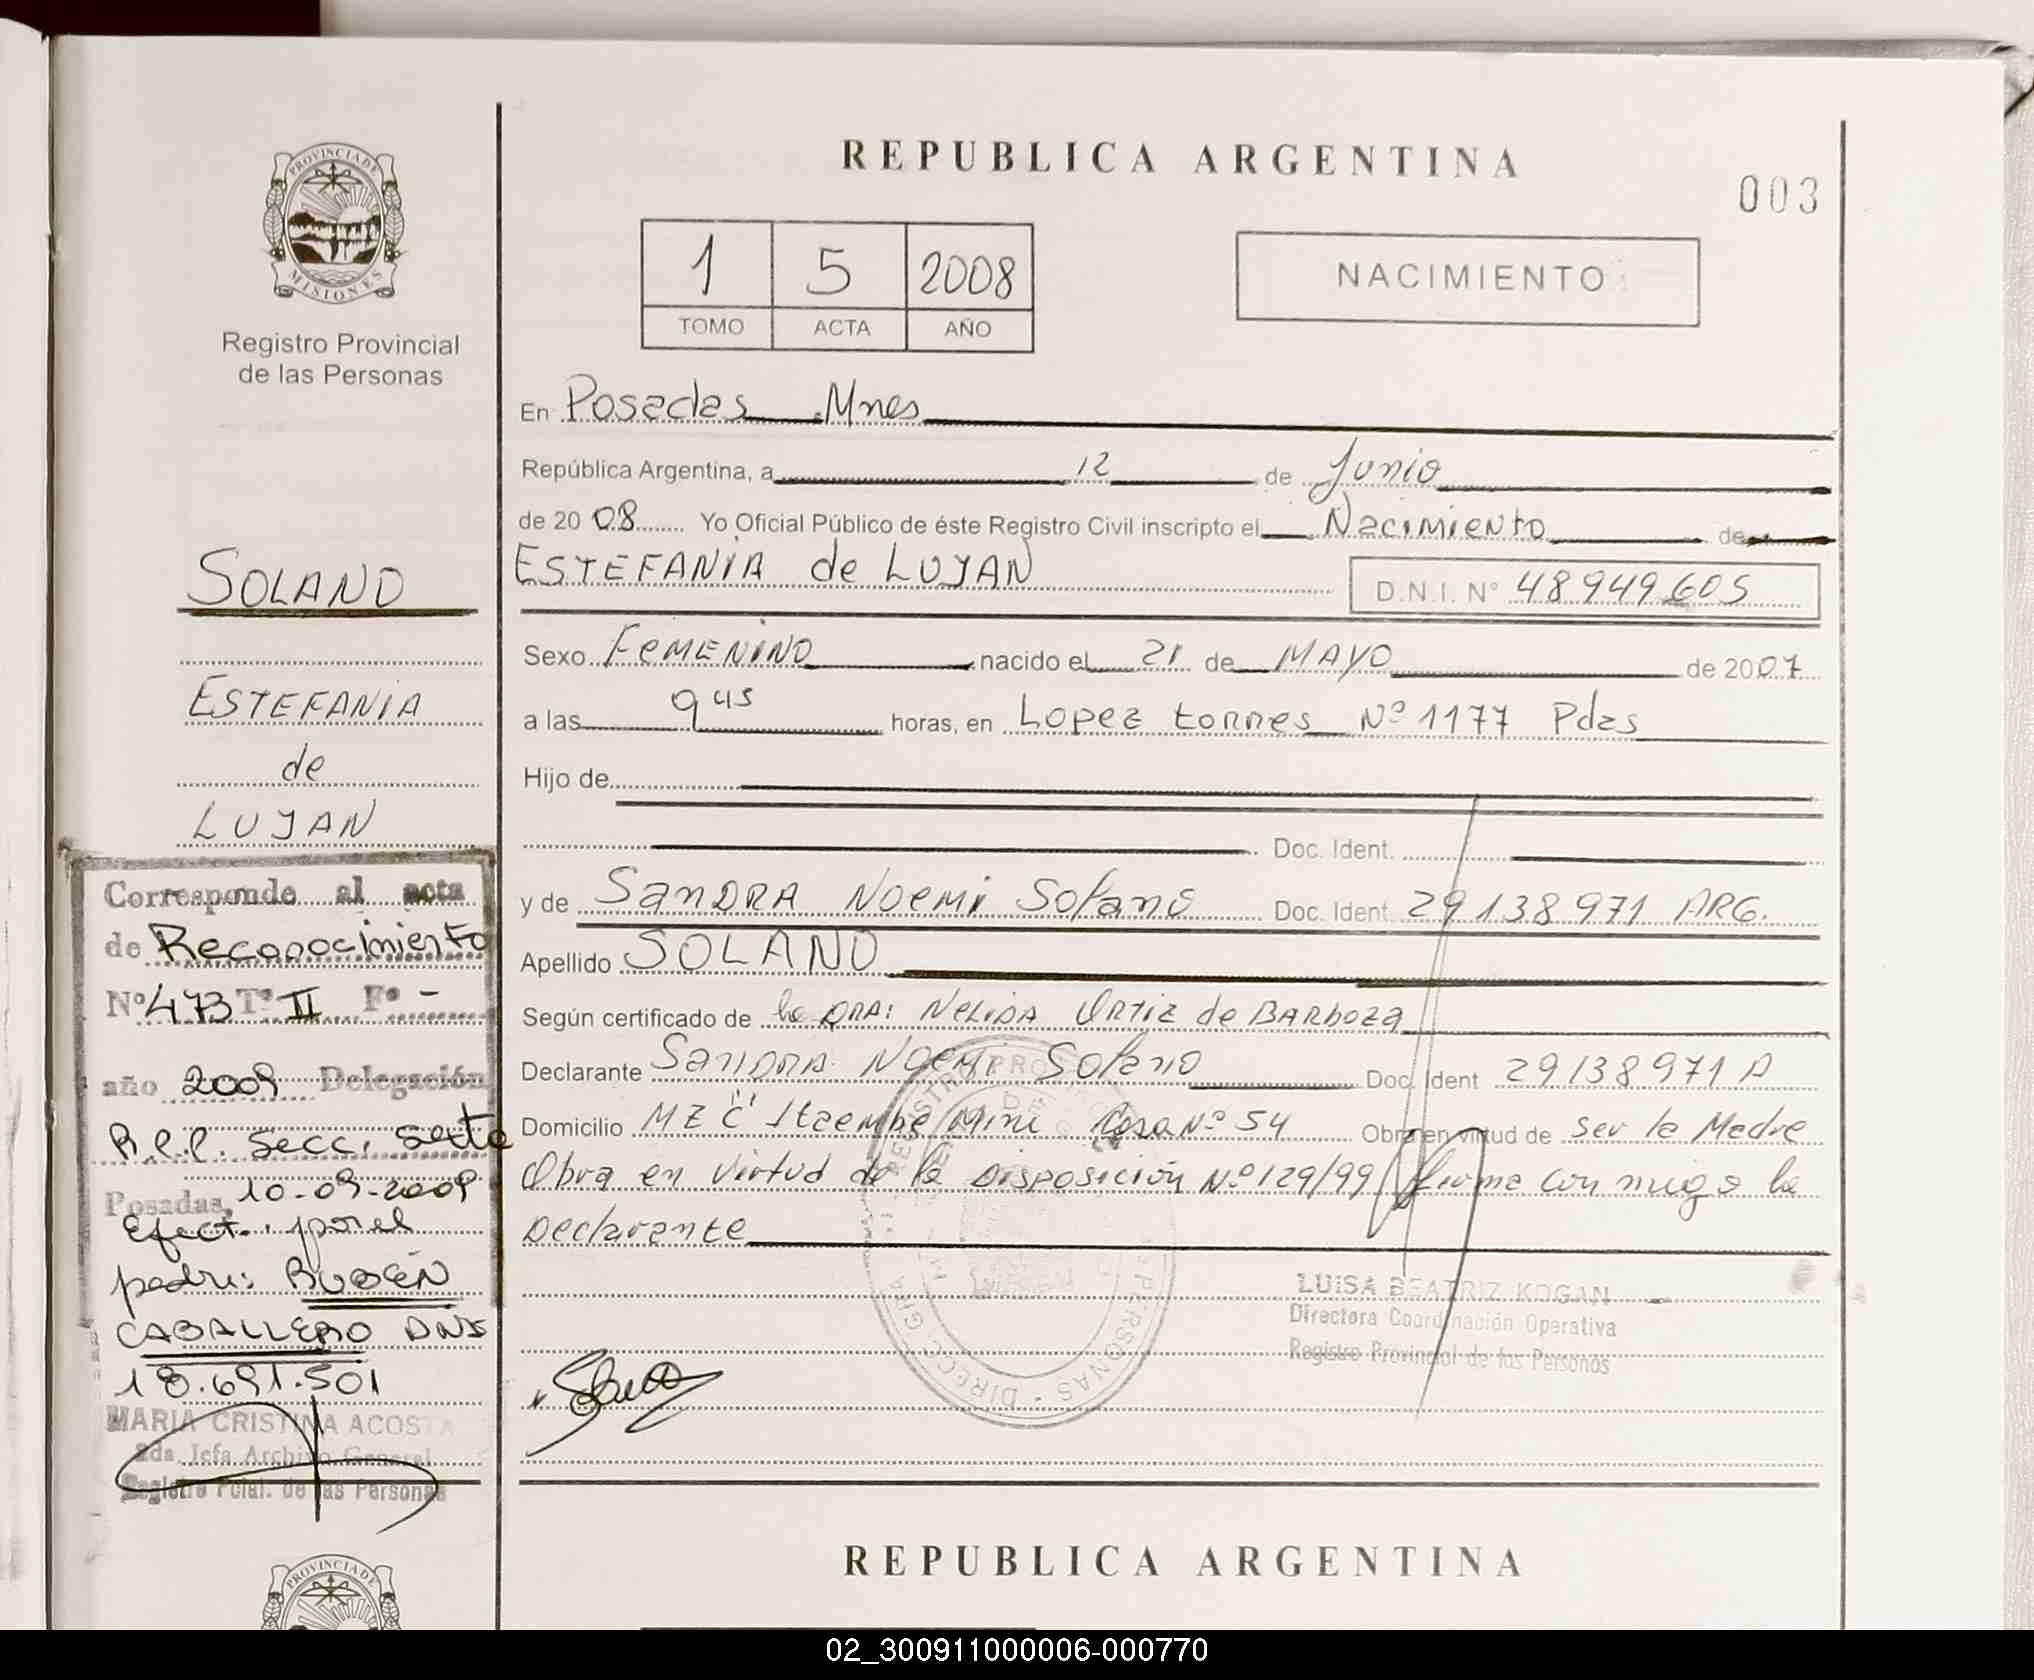 REPUBLICA ARGENTINA
003
PROVINCIA DE
MISIONES
Registro Provincial
de las Personas
1 5 2008
TOMO ACTA AÑO
NACIMIENTO
En Posadas Mnes
República Argentina, a 12 de Junio
de 20 08 Yo Oficial Público de éste Registro Civil inscripto el Nacimiento de
ESTEFANIA de LUJAN D.N.I. Nº 48949605
Sexo FEMENINO nacido el 21 de MAYO de 2007
a las 9 45 horas, en Lopez torres Nº 1177 Pdas
Hijo de
Doc. Ident.
y de SANDRA NOEMI Solano Doc. Ident. 29138971 ARG.
Apellido SOLANO
Según certificado de la DRA: NELIDA ORTIZ de BARBOZA
Declarante SANDRA NOEMI Solano Doc. Ident 29138971 A
Domicilio MZ "C" Itaembe Mini Casa Nº 54 Obra en virtud de ser la Madre
Obra en virtud de la Disposición Nº 129/99 firma con migo la
Declarante
LUISA BEATRIZ KOGAN
Directora Coordinación Operativa
Registro Provincial de las Personas
SOLANO
ESTEFANIA
de
LUJAN
Corresponde al acta
de Reconocimiento
Nº 473 Tº II Fº -
año 2009 Delegación
R.P.P. Secc. Sexta
Posadas, 10-09-2009
Efect. por el
padre: RUBÉN
CABALLERO DNI
18.691.501
MARIA CRISTINA ACOSTA
2da Jefa Archivo General
Registro Pcial. de las Personas
REPUBLICA ARGENTINA
PROVINCIA DE
02_300911000006-000770